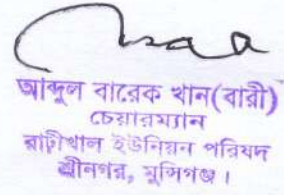 আব্দুল বারেক খান(বারী)
চেয়ারম্যান
রাঢ়ীখাল ইউনিয়ন পরিষদ
শ্রীনগর, মুন্সিগঞ্জ।